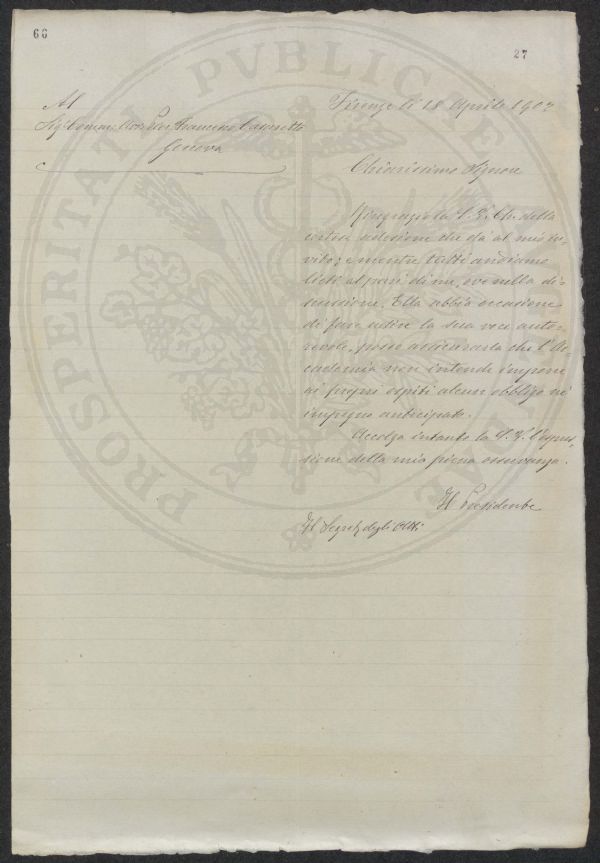 66
27
PROSPERITATI PVBLICAE AVGENDAE
Al
Sig. Comm. Avv. Prof. Francesco
Genova
Firenze li 18 Aprile 1903
Chiarissimo Signore
Ringrazio la S. V. Ch. della
cortese adesione che dà al mio in-
vito; e mentre tutti andiamo
lieti al pari di me, ove nella di-
scussione, Ella abbia occasione
di fare udire la sua voce auto-
revole, posso assicurarla che l'Ac-
cademia non intende imporre
ai propri ospiti alcun obbligo nè
impegno anticipato.
Accolga intanto la S. V. l'espres-
sione della mia piena osservanza.
Il Presidente
Il Segret. degli Atti